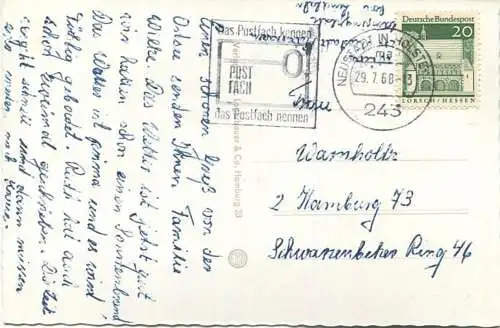 Einen schönen Gruß von der
Ostsee sendet Ihnen Familie
Wilke. Das Wetter ist jetzt gut
wir haben schon einen Sonnenbrand
Das Wasser ist prima und es wird
gebadet. Ruth hat auch
schon zweimal geschrieben. Die Zeit
vergeht schnell und dann müssen
wir wieder nach Hause.
Das Postfach kennen
POST
FACH
das Postfach nennen
NEUSTADT IN HOLSTEIN
29.7.68-
243
Deutsche Bundespost
20
LORSCH/HESSEN
& Co. Hamburg 33
Warnholtz
2 Hamburg 73
Schwarzenbeker Ring 46